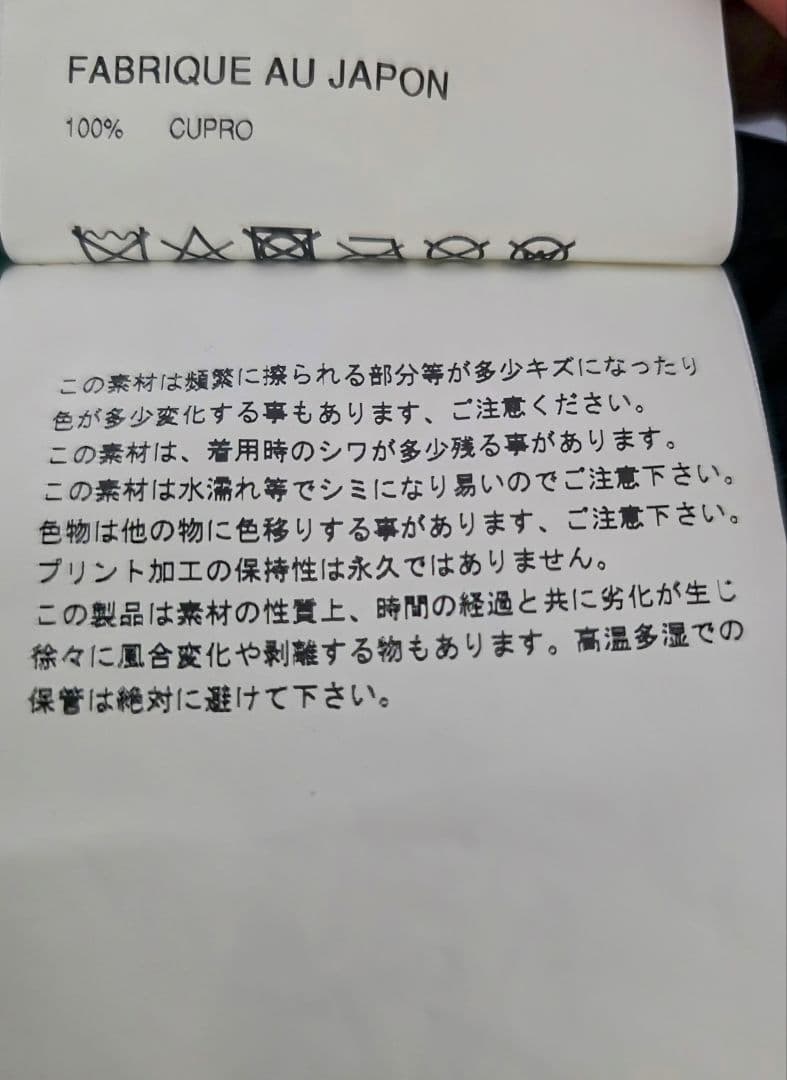 FABRIQUE AU JAPON
100% CUPRO
この素材は頻繁に擦られる部分等が多少キズになったり
色が多少変化する事もあります、ご注意ください。
この素材は、着用時のシワが多少残る事があります。
この素材は水濡れ等でシミになり易いのでご注意下さい。
色物は他の物に色移りする事があります、ご注意下さい。
プリント加工の保持性は永久ではありません。
この製品は素材の性質上、時間の経過と共に劣化が生じ
徐々に風合変化や剥離する物もあります。高温多湿での
保管は絶対に避けて下さい。